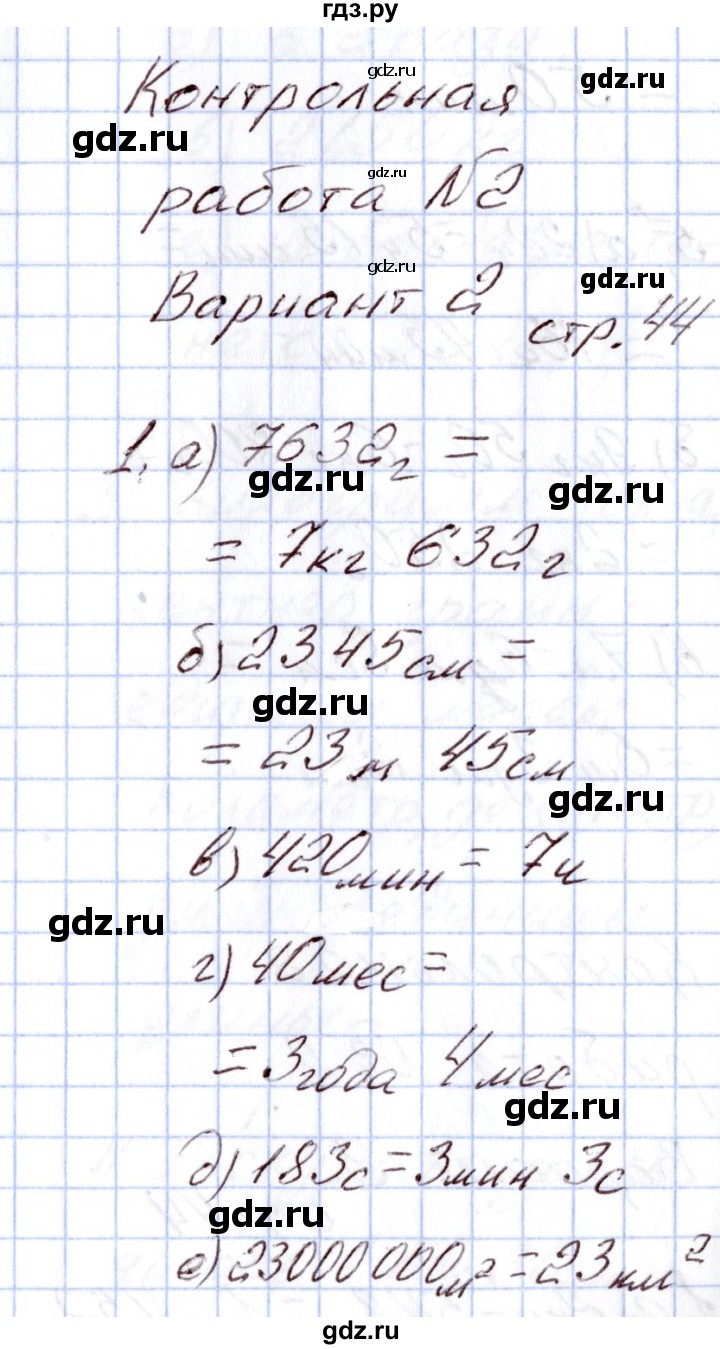 гдз.ру
gdz.ru
Контрольная
gdz.ru
gdz.ru
gdz.ru
работа №2
gdz.ru
gdz.ru
Вариант 2
стр. 44
1. а) 7632г =
gdz.ru
gdz.ru
= 7кг 632г
б) 2345см =
gdz.ru
= 23м 45см
gdz.ru
в) 420мин = 7ч
gdz.ru
г) 40мес =
= 3года 4мес
gdz.ru
д) 183с = 3мин 3с
gdz.ru
е) 23000000м² = 23км²
gdz.ru